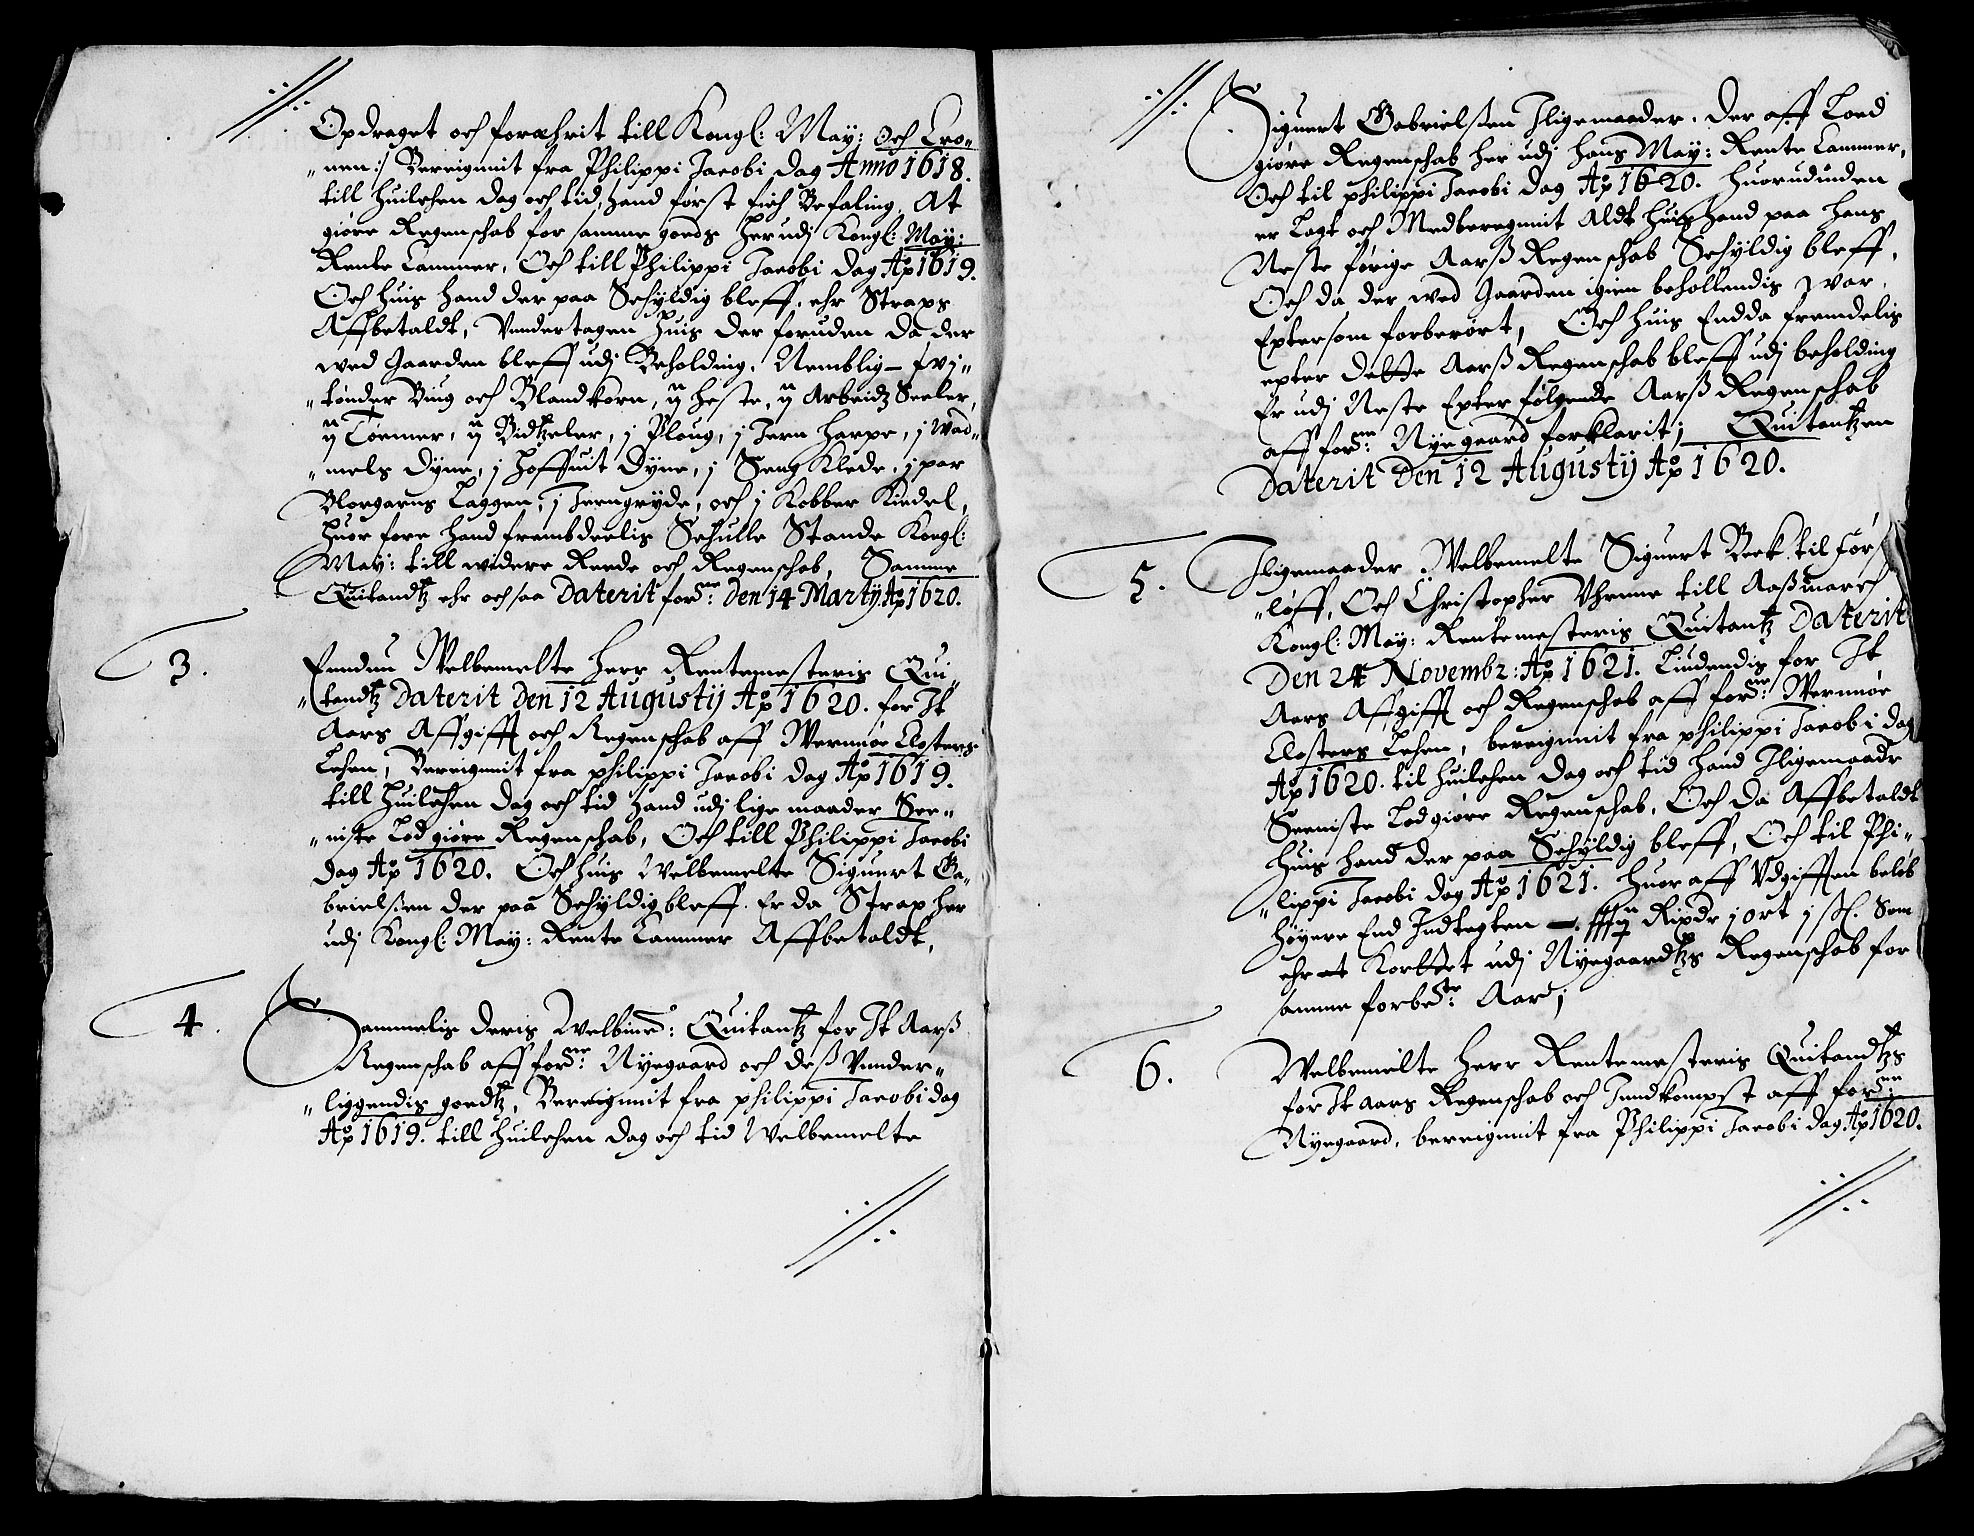 Opdraget och foræhrit till Kongl: May: och Cro-
nen:/ Bereignit fra Philippi Jacobi dag Anno 1618.
till huilchen dag och tid, hand først fich Befaling, At
giøre Regenschab for samme goeds her udj Kongl: May:
Rente Cammer, Och till Philippi Jacobi dag Ao 1619.
Och huis hand der paa Schyldig bleff, ehr Straps
Affbetaldt, Vndertagen huis der foruden da der
wed Gaarden bleff udj Beholding, Nemblig
tønder Biug och Blandkorn, ij heste, ij Arbeidz Seeler,
ij Tømmer, ij Bidtzeler, j Ploug, j Jern Harpe, j Wad-
mels dyne, j Hoffuit dyne, j Seng Klede, j par
Blorgarns Laggen, j Jerngryde, och j Kobber Kiedel,
huor fore hand frembdeelis Schulle Stande Kongl:
May: till widere Reede och Regenschab, Samme
Quitandtz ehr och saa Daterit forne: den 14 Martij Ao 1620.
3. Enndnu Welbemelte Herr Rentemesteris Qui-
tandtz Daterit Den 12 Augustij Ao 1620. for It
Aars Affgifft och Regenschab aff Wernnøe Closters
Lehen, Bereignit fra philippi Jacobi dag Ao 1619.
till huilchen dag och tid hand udj lige maader See-
niste Lod giøre Regenschab, Och till Philippi Jacobi
dag Ao 1620. Och huis Welbemelte Siguert Ga-
brielßen der paa Schyldig bleff. Er da Strax her
udj Kongl: May: Rente Cammer Affbetaldt,
4. Sammelis deris Welbmte: Quitantz for It Aarß
Regenschab aff forne: Nyegaard och deß Vnder-
liggendis goedtz, Bereignit fra philippi Jacobi dag
Ao 1619. till huilchen dag och tid Welbemelte
Siguert Gabrielßen Iligemaader, der aff Loed
giøre Regenschab her udj hans May: Rente Cammer,
Och til philippi Jacobi dag Ao 1620. huorudinden
er Lagt och Medberegnit Aldt huis hand paa hans
Neste førige Aarß Regenschab Schyldig bleff,
Och da der wed Gaarden igien beholdendis war,
Eptersom forberørt, Och huis Endda fremdelis
epter dette Aarß Regenschab bleff udj beholding
Er udj Neste Epter følgende Aarß Regenschab
aff forne: Nyegaard forklarit; Quitantzen
Daterit Den 12 Augustij Ao 1620.
5. Iligemaader Welbemelte Siguert Beck til Førs-
løff, Och Christopher Vhrnne till Aaßmarch
Kongl: May: Rentemesteris Quitantz Daterit
Den 24 Novembr: Ao 1621. Liudendis for It
Aars Affgifft och Regenschab aff forne: Wernnøe
Closters Lehen, bereignit fra philippi Jacobi dag
Ao 1620. til huilchen dag och tid hand Iligemaade
Seeniste Lod giøre Regenschab, Och da Affbetaldt
huis hand der paa Schyldig bleff, Och til Phi-
lippi Jacobi dag Ao 1621. huor aff Vdgifften beløb
høyere End Indtegten Rixdr j ort j ß. Som
ehr at Kortet udj Nyegaardtzs Regenschab for
samme forbete: Aar;
6. Welbemelte Herr Rentemesteris Quitandtzs
for It Aars Regenschab och Inndkompst aff forne:
Nyegaard, bereignit fra Philippi Jacobi dag Ao 1620.